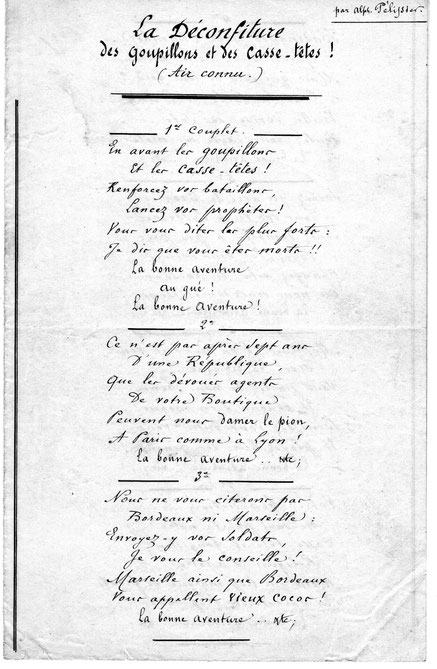 par Alph. Pélisster.
La Déconfiture
des Goupillons et des Casse-têtes !
(Air connu.)
1er Couplet.
En avant les goupillons
Et les casse-têtes !
Renforcez vos bataillons,
Lancez vos prophètes !
Vous vous dites les plus forts :
Je dis que vous êtes morts !!
La bonne aventure
au gué !
La bonne aventure !
2e
Ce n'est pas après sept ans
D'une République,
Que les dévoués agents
De votre Boutique
Peuvent nous damer le pion,
A Paris comme à Lyon !
La bonne aventure .. etc;
3e
Nous ne vous citerons pas
Bordeaux ni Marseille :
Envoyez-y vos soldats,
Je vous le conseille !
Marseille ainsi que Bordeaux
Vous appellent vieux cocos !
La bonne aventure .. etc;